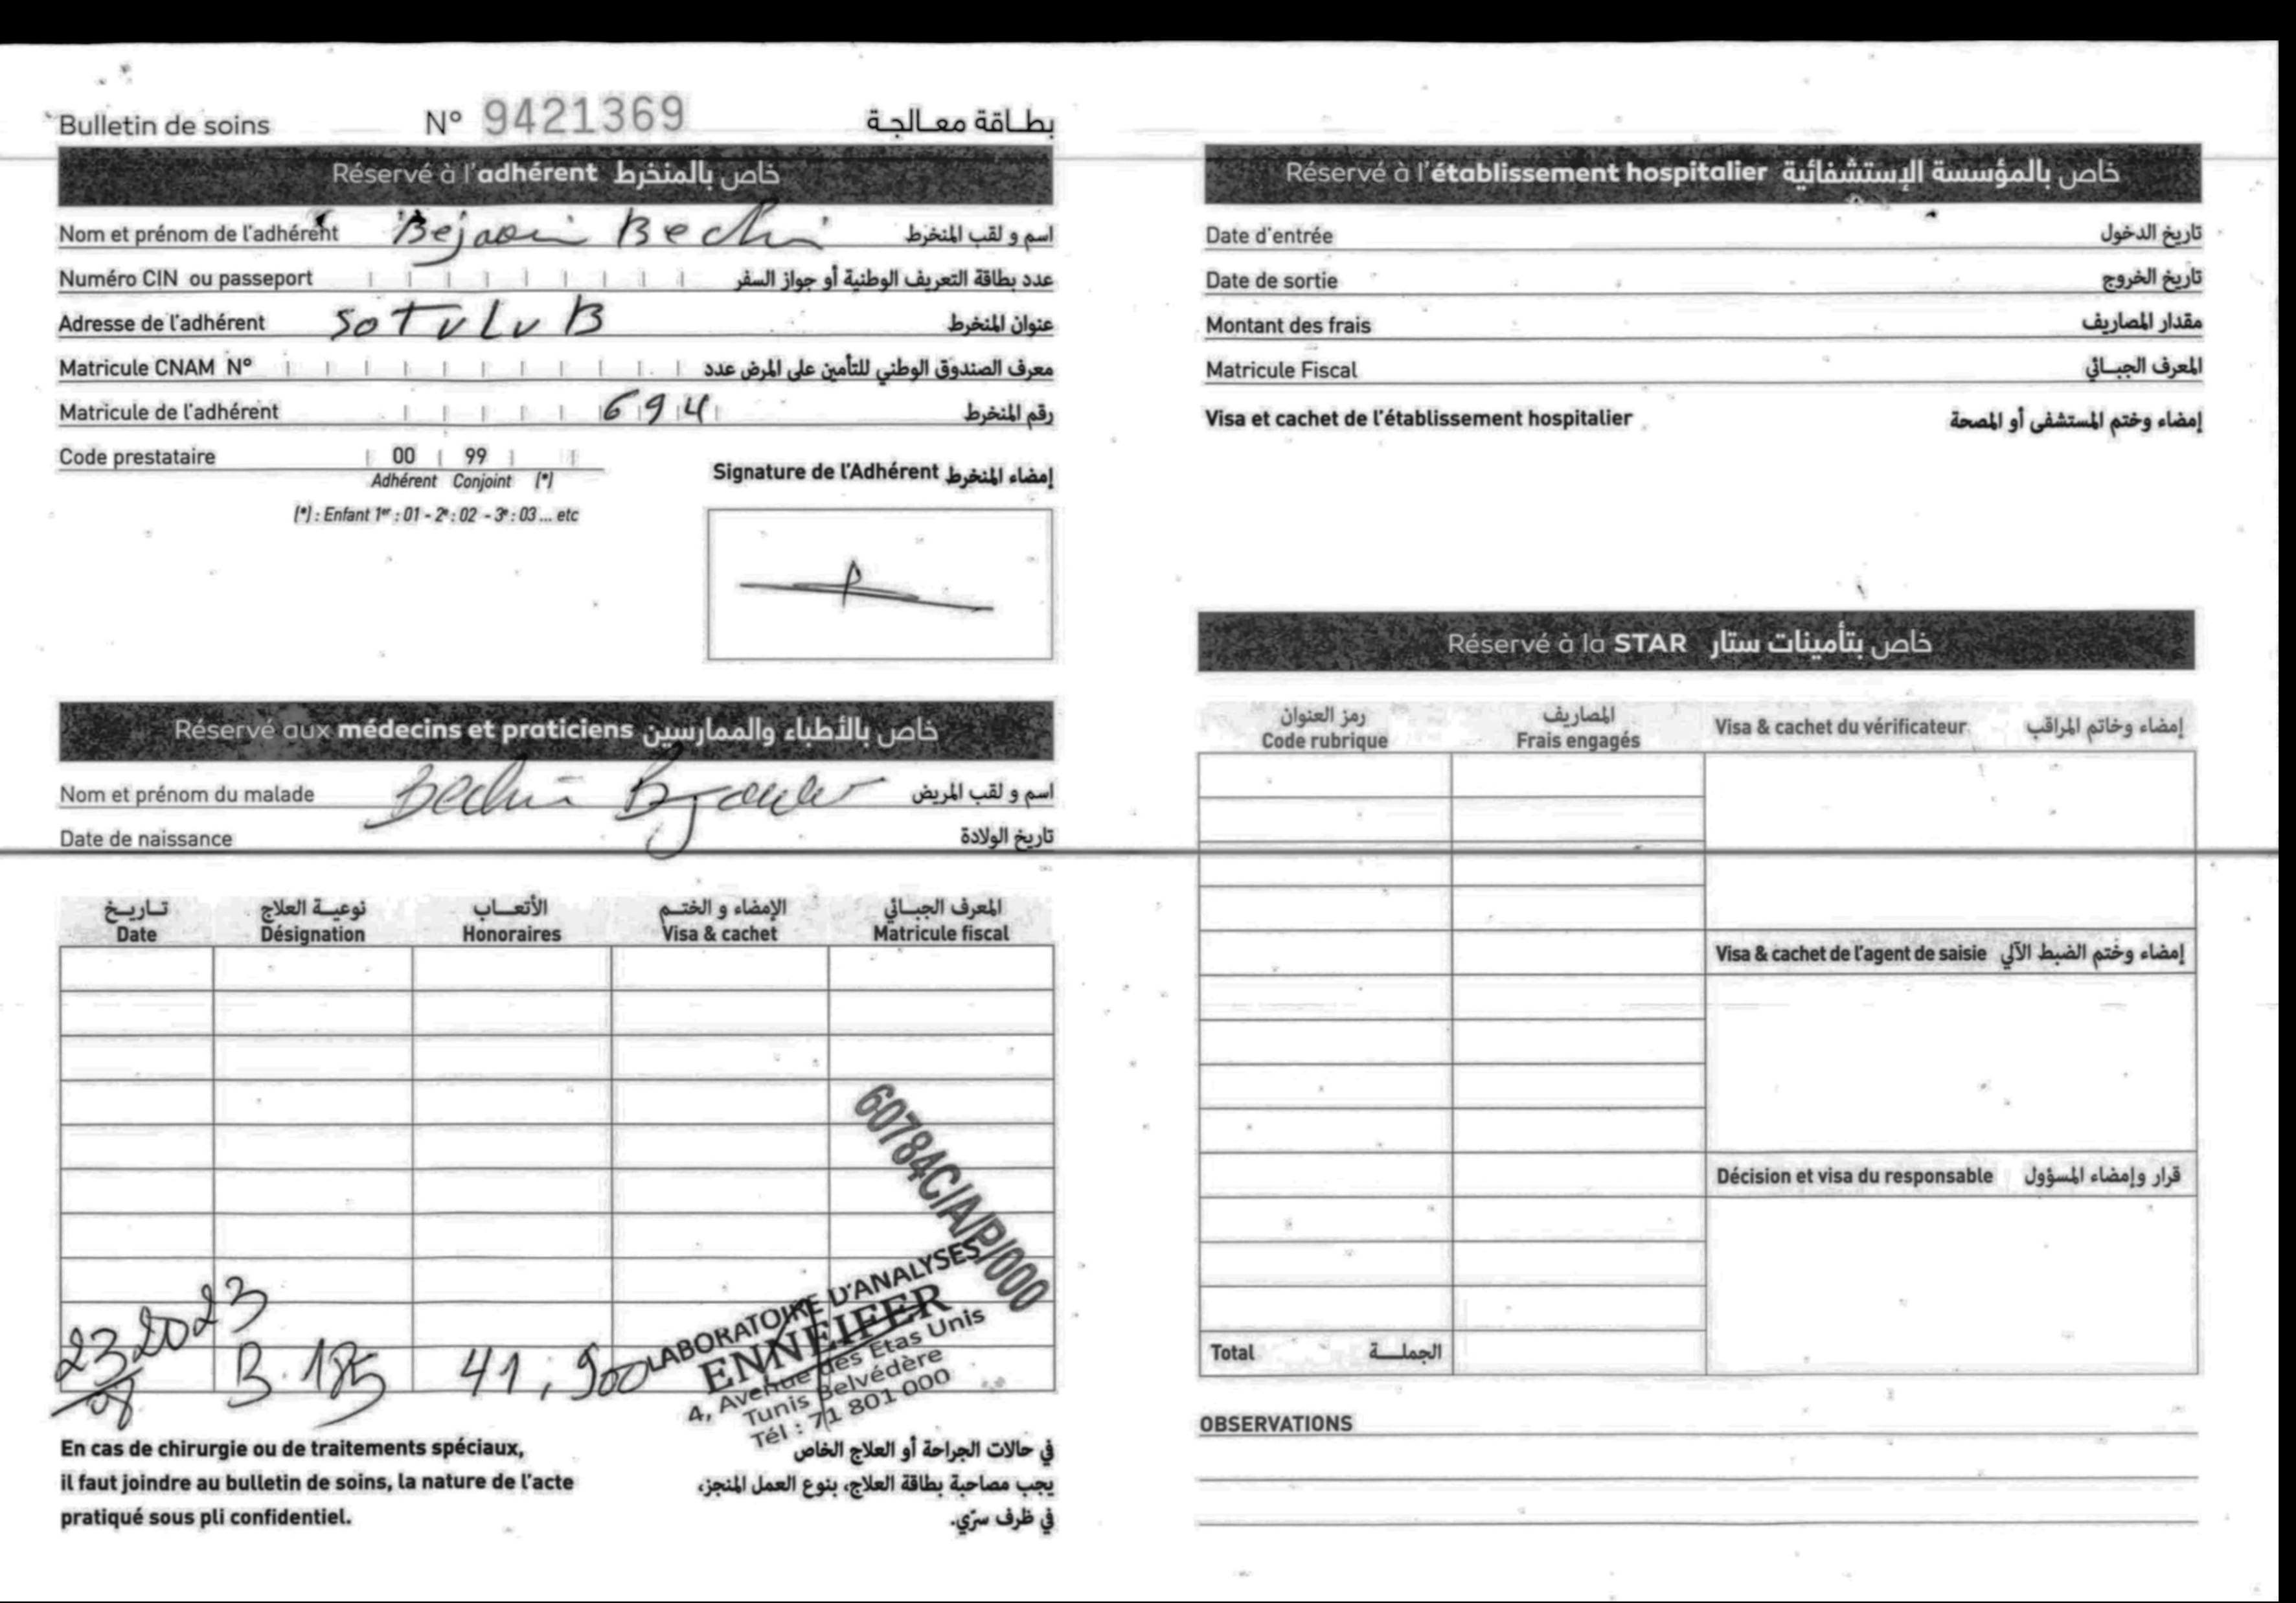 Bulletin de soins N° 9421369 بطاقة معالجة
Réservé à l'adhérent خاص بالمنخرط
Nom et prénom de l'adhérent Bejaoui Bechir اسم و لقب المنخرط
Numéro CIN ou passeport عدد بطاقة التعريف الوطنية أو جواز السفر
Adresse de l'adhérent SOTULUB عنوان المنخرط
Matricule CNAM N° معرف الصندوق الوطني للتأمين على المرض عدد
Matricule de l'adhérent 694 رقم المنخرط
Code prestataire 00 99
Adhérent Conjoint (*)
(*) : Enfant 1er : 01 - 2e : 02 - 3e : 03 ... etc
Signature de l'Adhérent إمضاء المنخرط
Réservé aux médecins et praticiens خاص بالأطباء والممارسين
Nom et prénom du malade Bechir اسم و لقب المريض
Date de naissance تاريخ الولادة
تاريخ نوعية العلاج الأتعاب الإمضاء و الختم المعرف الجبائي
Date Désignation Honoraires Visa & cachet Matricule fiscal
60784C/A/P/000
23/08 2023 B.185 41,900
LABORATOIRE D'ANALYSES
ENNEIFER
4, Avenue des Etas Unis
Tunis Belvédère
Tél : 71 801 000
En cas de chirurgie ou de traitements spéciaux,
il faut joindre au bulletin de soins, la nature de l'acte
pratiqué sous pli confidentiel.
في حالات الجراحة أو العلاج الخاص
يجب مصاحبة بطاقة العلاج، بنوع العمل المنجز،
في ظرف سرّي.
Réservé à l'établissement hospitalier خاص بالمؤسسة الإستشفائية
Date d'entrée تاريخ الدخول
Date de sortie تاريخ الخروج
Montant des frais مقدار المصاريف
Matricule Fiscal المعرف الجبائي
Visa et cachet de l'établissement hospitalier إمضاء وختم المستشفى أو المصحة
Réservé à la STAR خاص بتأمينات ستار
رمز العنوان المصاريف
Code rubrique Frais engagés Visa & cachet du vérificateur إمضاء وخاتم المراقب
Visa & cachet de l'agent de saisie إمضاء وختم الضبط الآلي
Décision et visa du responsable قرار وإمضاء المسؤول
Total الجملة
OBSERVATIONS